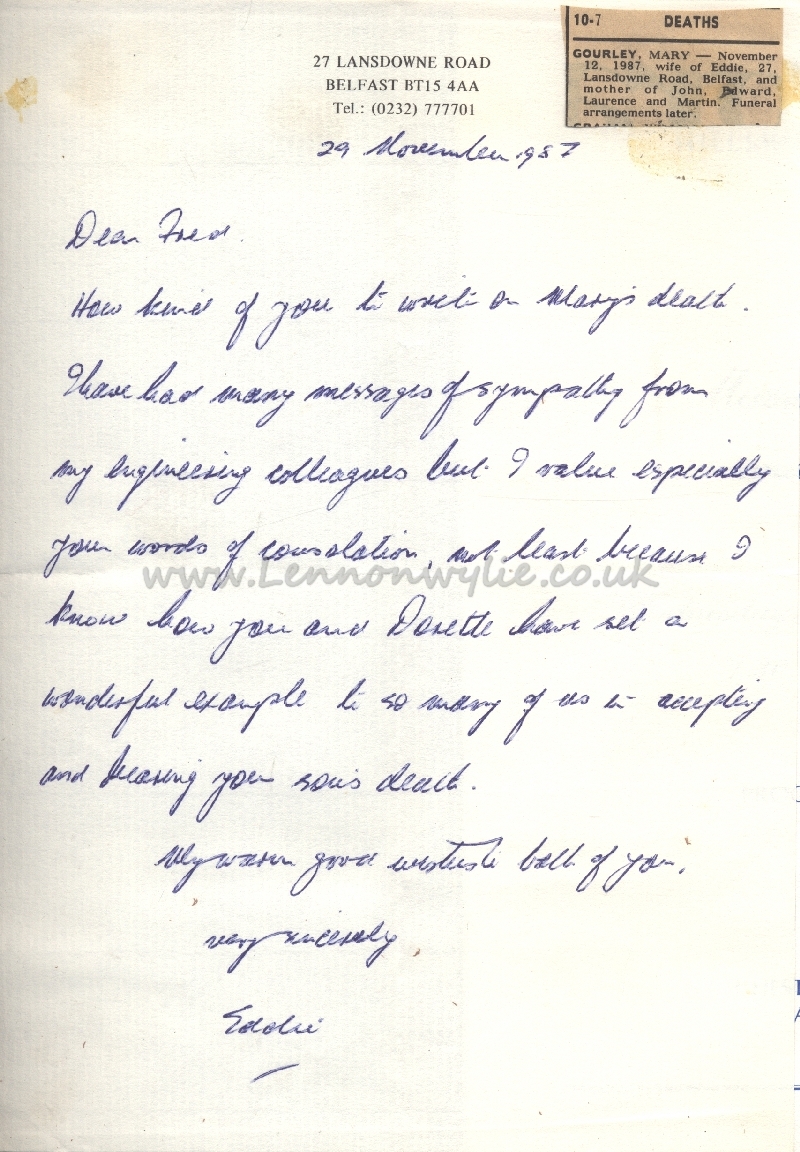 27 LANSDOWNE ROAD
BELFAST BT15 4AA
Tel.: (0232) 777701
10-7 DEATHS
GOURLEY, MARY — November
12, 1987, wife of Eddie, 27,
Lansdowne Road, Belfast, and
mother of John, Edward,
Laurence and Martin. Funeral
arrangements later.
29 November 1987
Dear Fred.
How kind of you to write on Mary's death.
I have had many messages of sympathy from
my engineering colleagues but I value especially
your words of consolation, not least because I
www.Lennonwylie.co.uk
know how you and Dorette have set a
wonderful example to so many of us in accepting
and bearing your son's death.
My warm good wishes to both of you,
very sincerely
Eddie